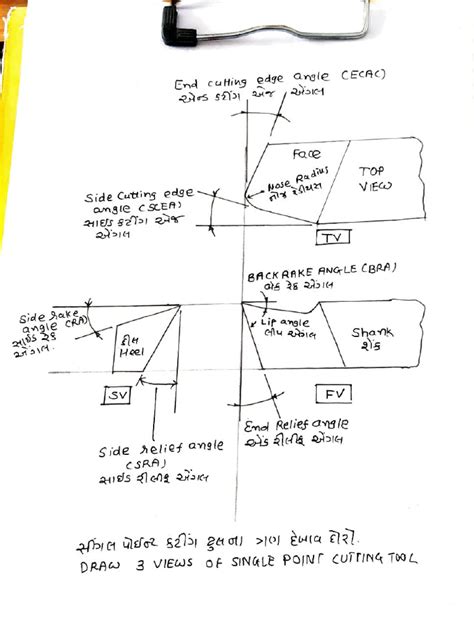 End cutting edge angle (ECAC)
એન્ડ કટીંગ એજ એંગલ
Face
Nose Radius
નોઝ રેડીયસ
TOP
VIEW
Side Cutting edge
angle (SCEA)
સાઇડ કટીંગ એજ
એંગલ
TV
BACKRAKE ANGLE (BRA)
બેક રેક એંગલ
Side rake
angle (RA)
સાઇડ રેક
એંગલ
હીલ
Heel
Lip angle
લીપ એંગલ
Shank
શેંક
SV
FV
End Relief angle
એંડ રીલીફ એંગલ
Side relief angle
(SRA)
સાઇડ રીલીફ એંગલ
સીંગલ પોઇન્ટ કટીંગ ટુલના ત્રણ દેખાવ દોરો.
DRAW 3 VIEWS OF SINGLE POINT CUTTING TOOL